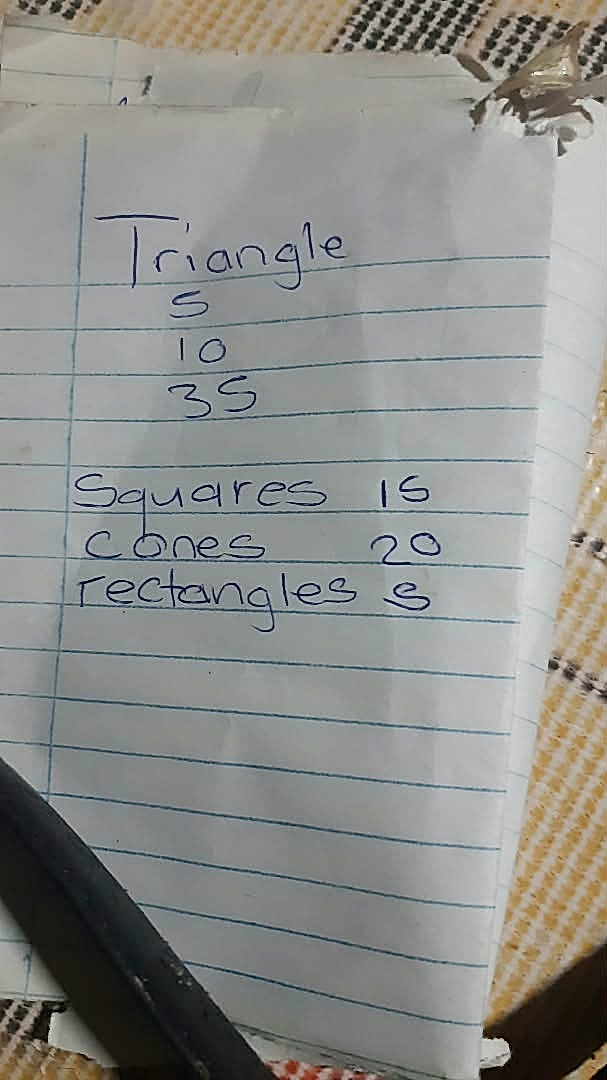 Triangle
5
10
35
Squares 15
Cones 20
rectangles 5